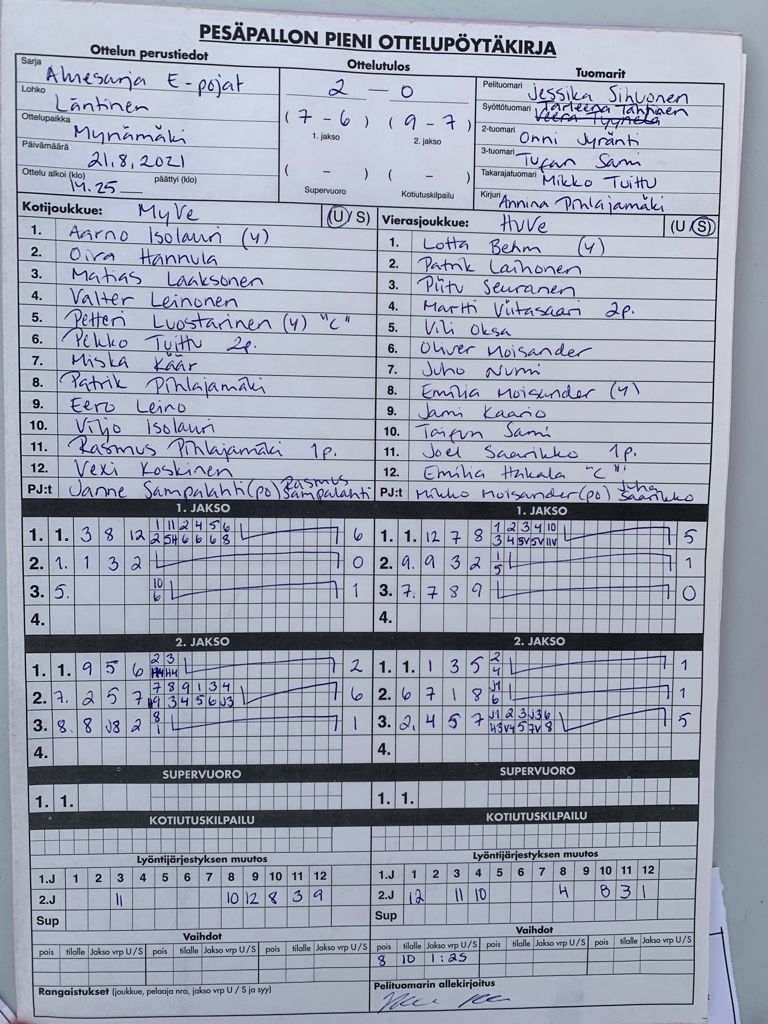 PESÄPALLON PIENI OTTELUPÖYTÄKIRJA
Ottelun perustiedot
Ottelutulos
Tuomarit
Sarja
Aluesarja E-pojat
2 — 0
Pelituomari Jessika Sihvonen
Lohko
Läntinen
Syöttötuomari
Ottelupaikka
Mynämäki
(7 - 6) (9 - 7)
1. jakso 2. jakso
2-tuomari Onni Jyränti
Päivämäärä
21.8.2021
3-tuomari Tufan Sami
Ottelu alkoi (klo) 14.25 päättyi (klo)
( - ) ( - )
Supervuoro Kotiutuskilpailu
Takarajatuomari Mikko Tuittu
Kirjuri Annina Pihlajamäki
Kotijoukkue: MyVe (U / S)
1. Aarno Isolauri (4)
2. Oiva Hannula
3. Matias Laaksonen
4. Valter Leinonen
5. Petteri Luostarinen (4) "C"
6. Pekko Tuittu 2p.
7. Miska Käär
8. Patrik Pihlajamäki
9. Eero Leino
10. Viljo Isolauri
11. Rasmus Pihlajamäki 1p.
12. Vexi Koskinen
PJ:t Janne Sampalahti (po) Rasmus Sampalahti
Vierasjoukkue: HuVe (U / S)
1. Lotta Behm (4)
2. Patrik Laihonen
3. Piitu Seuranen
4. Martti Viitasaari 2p.
5. Vili Oksa
6. Oliver Moisander
7. Juho Nurmi
8. Emilia Moisander (4)
9. Jami Kaario
10. Taifun Sami
11. Joel Saarikko 1p.
12. Emilia Hakala "C"
PJ:t Mikko Moisander (po) Juha Saarikko
1. JAKSO
1. 1. 3 8 12
1 11 2 4 5 6
2 5H 6 6 6 8
6
2. 1. 1 3 2 0
3. 5.
10
6
1
4.
1. JAKSO
1. 1. 12 7 8
1 2 3 4 10
3 4 5V 5V 11V
5
2. 9. 9 3 2
1
5
1
3. 7. 7 8 9 0
4.
2. JAKSO
1. 1. 9 5 6
2 3
2
2. 7. 2 5 7
7 8 9 1 3 4
3 4 5 6 J3
6
3. 8. 8 J8 2
8
1
1
4.
2. JAKSO
1. 1. 1 3 5
2
4
1
2. 6 7 1 8
J1
6
1
3. 2. 4 5 7
J1 2 3 J3 6
H3 V4 5 7V 8
5
4.
SUPERVUORO
1. 1.
SUPERVUORO
1. 1.
KOTIUTUSKILPAILU
KOTIUTUSKILPAILU
Lyöntijärjestyksen muutos
1.J 1 2 3 4 5 6 7 8 9 10 11 12
2.J 11 10 12 8 3 9
Sup
Lyöntijärjestyksen muutos
1.J 1 2 3 4 5 6 7 8 9 10 11 12
2.J 12 11 10 4 8 3 1
Sup
Vaihdot
pois tilalle Jakso vrp U / S pois tilalle Jakso vrp U / S pois tilalle Jakso vrp U / S
Vaihdot
pois tilalle Jakso vrp U / S pois tilalle Jakso vrp U / S pois tilalle Jakso vrp U / S
8 10 1:25
Rangaistukset (joukkue, pelaaja nro, jakso vrp U / S ja syy)
Pelituomarin allekirjoitus